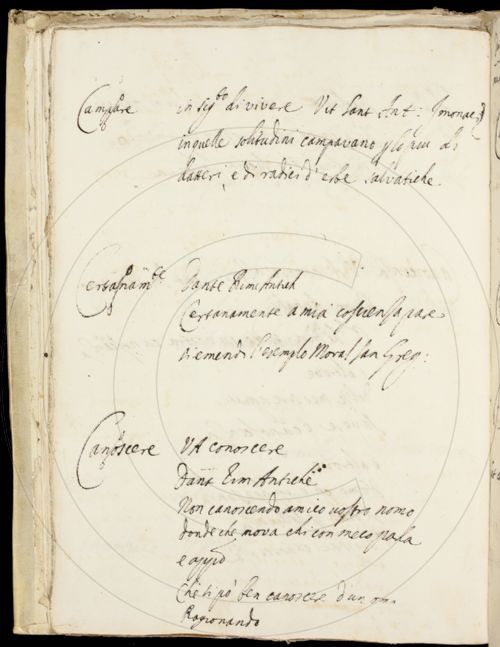 Campare in sig.to di vivere Vit Sant Ant: I monaci
in quelle solitudini campavano p lo piu di
datteri, e di radici d'erbe salvatiche.
Certanam.te Dante Rime Antich
Certanamente a mia coscienza pare
Canoscere VA conoscere
Dant Rim Antiche
Non canoscendo amico vostro nomo
donde che mova chi con meco parla
e appo
Che si pò ben canoscere d'un om
Ragionando